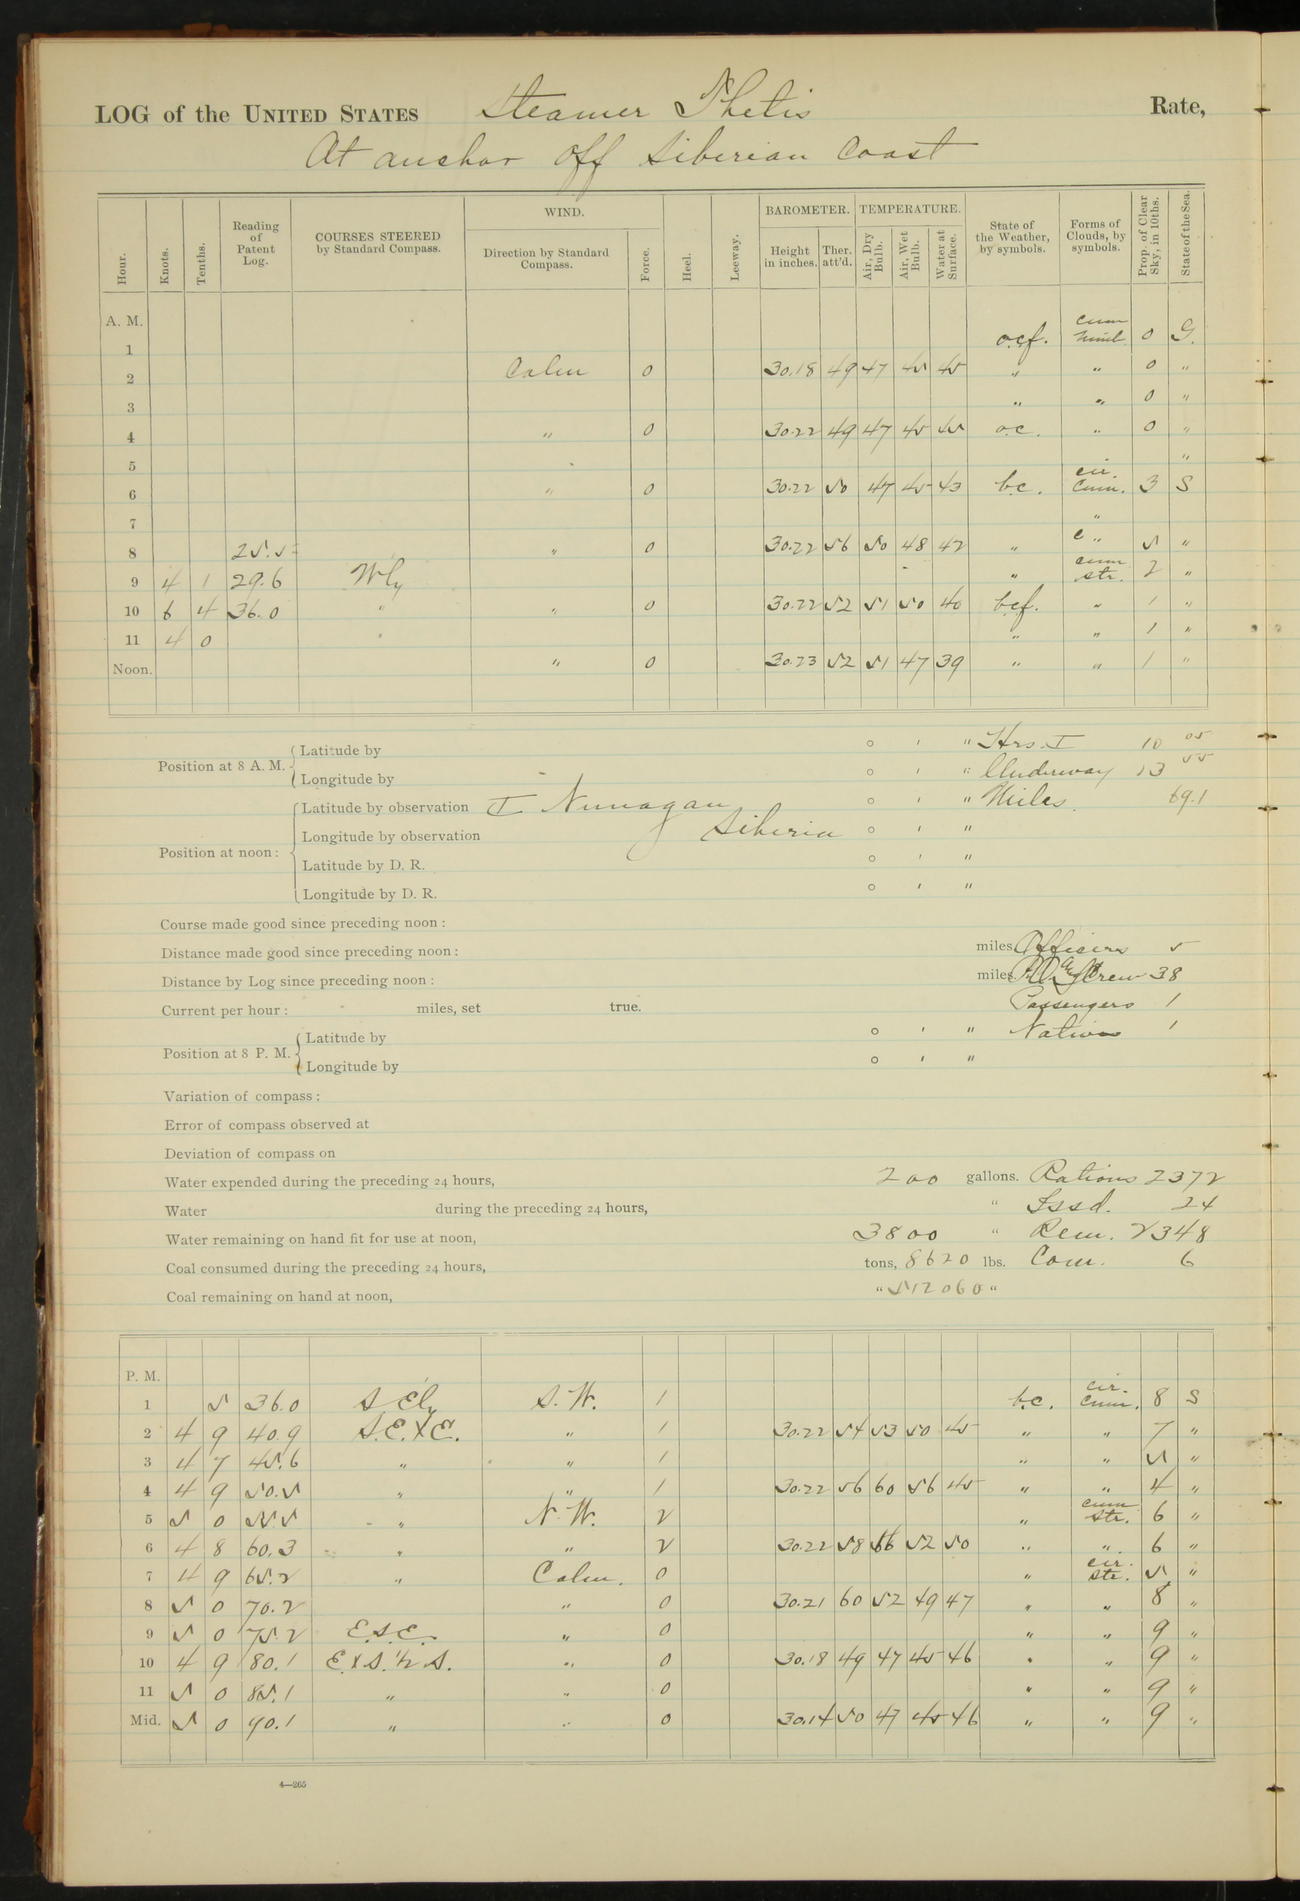 LOG of the UNITED STATES Steamer Thetis Rate,
At anchor off Siberian Coast
Hour. Knots. Tenths. Reading of Patent Log. COURSES STEERED by Standard Compass. WIND. Direction by Standard Compass. Force. Heel. Leeway. BAROMETER. Height in inches. Ther. att'd. TEMPERATURE. Air, Dry Bulb. Air, Wet Bulb. Water at Surface. State of the Weather, by symbols. Forms of Clouds, by symbols. Prop. of Clear Sky, in 10ths. State of the Sea.
A. M.
1 o.c.f. cum nimb. 0 G.
2 Calm 0 30.18 49 47 45 45 " " 0 "
3 " " 0 "
4 " 0 30.22 49 47 45 45 o.c. " 0 "
5 "
6 " 0 30.22 50 47 45 43 b.c. cir. cum. 3 S
7 "
8 25.5 " 0 30.22 56 50 48 42 " c " 5 "
9 4 1 29.6 Wly " cum str. 2 "
10 6 4 36.0 " " 0 30.22 52 51 50 40 bcf. " 1 "
11 4 0 " " " 1 "
Noon. " 0 30.23 52 51 47 39 " " 1 "
Position at 8 A. M. Latitude by ° ' " Hrs. 10 05
Longitude by ° ' " Underway 13 55
Position at noon: Latitude by observation Nunagan ° ' " Miles 69.1
Longitude by observation Siberia ° ' "
Latitude by D. R. ° ' "
Longitude by D. R. ° ' "
Course made good since preceding noon:
Distance made good since preceding noon: miles. Officers 5
Distance by Log since preceding noon: miles. Crew 38
Current per hour: miles, set true. Passengers 1
Position at 8 P. M. Latitude by ° ' " Natives 1
Longitude by ° ' "
Variation of compass:
Error of compass observed at
Deviation of compass on
Water expended during the preceding 24 hours, 200 gallons. Rations 2372
Water during the preceding 24 hours, " Issd. 24
Water remaining on hand fit for use at noon, 3800 " Rem. 2348
Coal consumed during the preceding 24 hours, tons, 8620 lbs. Com. 6
Coal remaining on hand at noon, " 512060 "
P. M.
1 5 36.0 S Ely S. W. 1 b.c. cir. cum. 8 S
2 4 9 40.9 S.E.XE. " 1 30.22 54 53 50 45 " " 7 "
3 4 7 45.6 " " 1 " " 5 "
4 4 9 50.5 " " 1 30.22 56 60 56 45 " " 4 "
5 5 0 55.5 " N. W. 2 " cum str. 6 "
6 4 8 60.3 " " 2 30.22 58 52 50 " " 6 "
7 4 9 65.2 " Calm. 0 " cir. str. 5 "
8 5 0 70.2 " 0 30.21 60 52 49 47 " " 8 "
9 5 0 75.2 E.S.E. " 0 " " 9 "
10 4 9 80.1 E.X S. 1/2 S. " 0 30.18 49 47 45 46 " " 9 "
11 5 0 85.1 " " 0 " " 9 "
Mid. 5 0 90.1 " " 0 30.14 50 47 45 46 " " 9 "
4—265